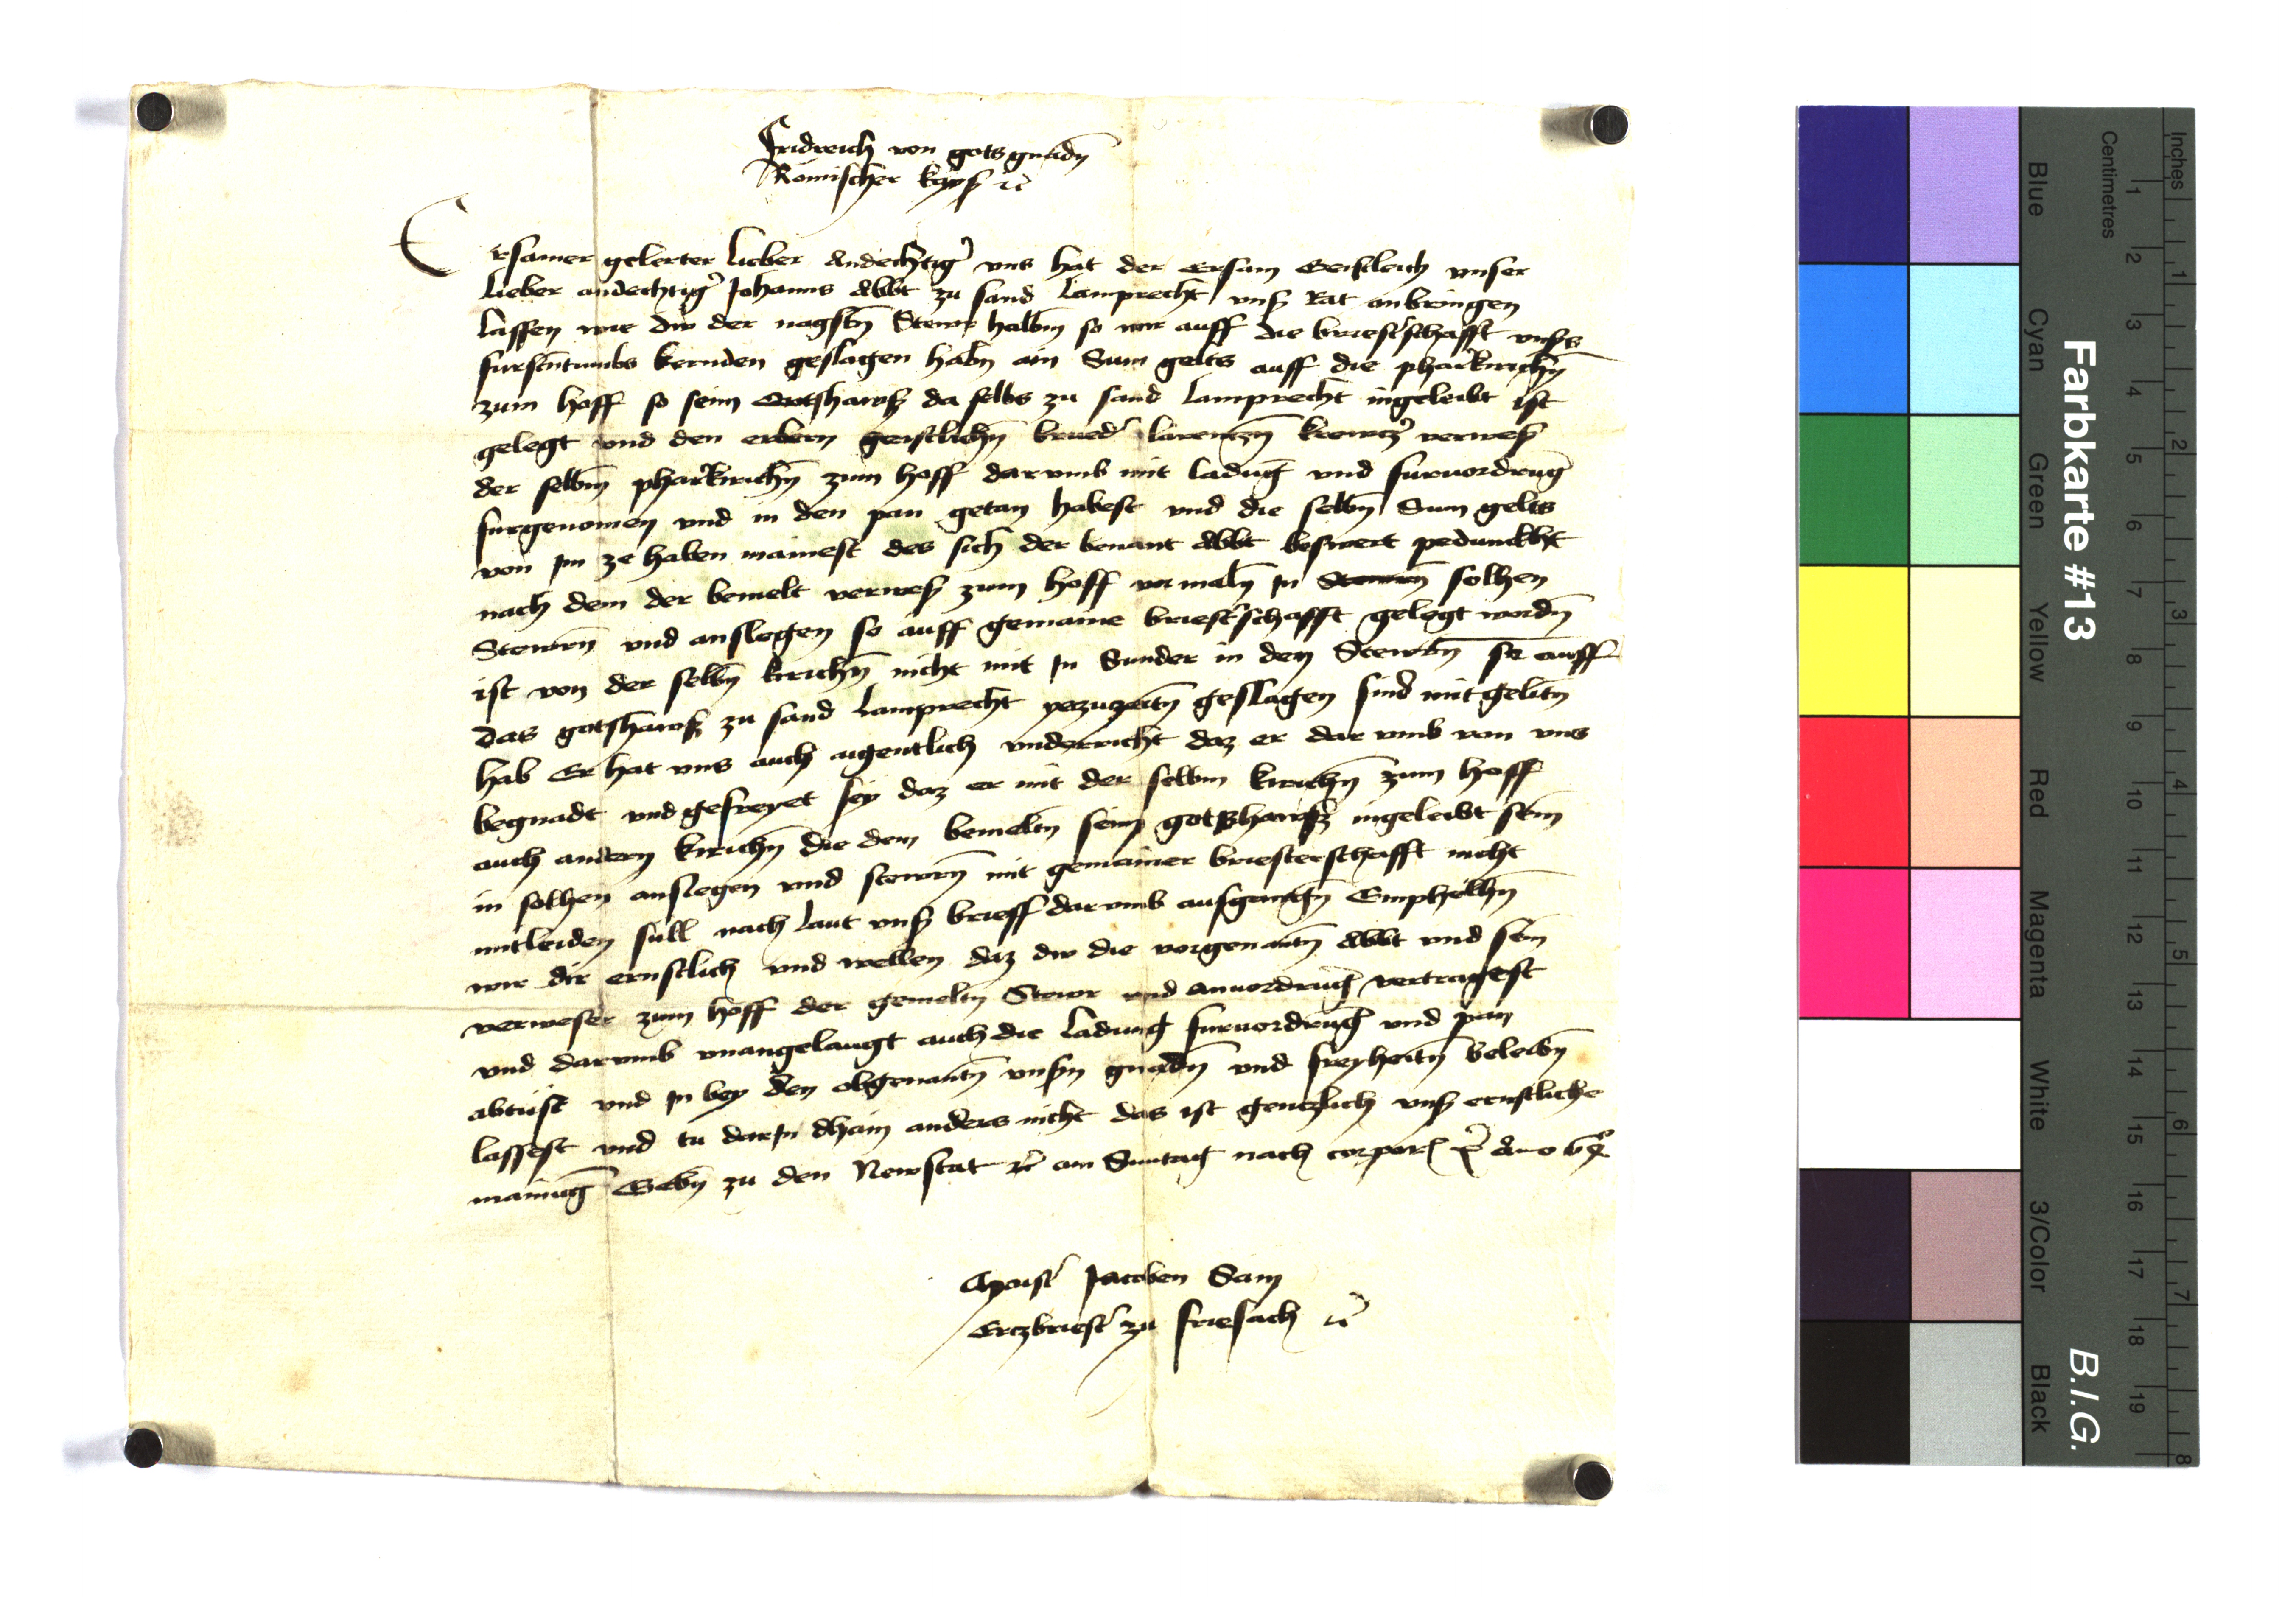 Fridreich von gots gnadn
Romischer kayser etc
Ersamer gelerter lieber Andechtiger vns hat der Ersam Geistleich vnser
lieber andechtiger Johanns Abbt zu sand Lamprecht vnser Rat anbringen
lassen wie dw der nagstn Stewr halbm so wir auff die briesterschafft vnsers
furstentumbs kernden geslagen habn ain Sum gelts auff die pharrkirichn
zum hoff so seim Gotshawss da selbs zu sand Lamprecht ingeleibt ist
gelegt vnd den erbern geistlichn brueder Larentzn verweser
der selbm pharrkirichn zum hoff dar vmb mit ladung vnd furuordrung
furgenomen vnd in den pan getan habest vnd die selbn Sum gelts
von Im ze haben mainest des sich der benant Abbt beswert pedunckht
nach dem der bemelt verweser zum hoff vormaln In Stewrn solhen
Stewrn vnd anslegen so auff gemaine briesterschafft gelegt wordn
ist von der selbn kirichn nicht mit In Sunder in den Stewrn so auff
das gotshawss zu sand Lamprecht yezuzeitn geslagen sind mitgelitn
hab Er hat vns auch aigentlich vnderricht daz er dar vmb von vns
begnadt vnd gefreyet sey daz er mit der selbm kirichn zum hoff
auch andern kirichn die dem bemeltn seim gotshawss ingeleibt sein
in solhen anslegen vnd stewrn mit gemainer briesterschafft nicht
mitleiden sull nach laut vnser brieff dar vmb ausgangn Emphelhn
wir dir ernstlich vnd wellen daz dw die vorgenantn Abbt vnd sein
verweser zum hoff der gemeltn Stewr vnd anuordrung vertragest
vnd darvmb vnangelangt auch die ladung furuordrung vnd pan
abtust vnd In bey den obgenantn vnsern gnadn vnd freyheitn beleibn
lassest vnd tu darIn dhain anders nicht das ist gentzlich vnser ernstliche
mainung Gebn zu den Newstat etc am Suntag nach corporis Christi Anno
Maister Jacoben
Ertzbriester zu friesach etc
Farbkarte #13
B.I.G.
Inches
Centimetres
1 2 3 4 5 6 7 8 9 10 11 12 13 14 15 16 17 18 19
1 2 3 4 5 6 7 8
Blue
Cyan
Green
Yellow
Red
Magenta
White
3/Color
Black